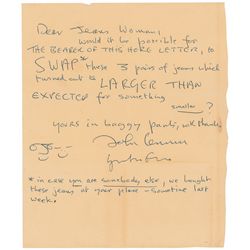 Dear Jeans Woman,
would it be possible for
THE BEARER OF THIS HERE LETTER, to
SWAP* these 3 pairs of jeans which
turned out to be LARGER THAN
EXPECTED for something
smaller?
yours in baggy pants, with thanks
John Lennon
Yoko Ono
* in case you are somebody else, we bought
these jeans at your place - sometime last
week.